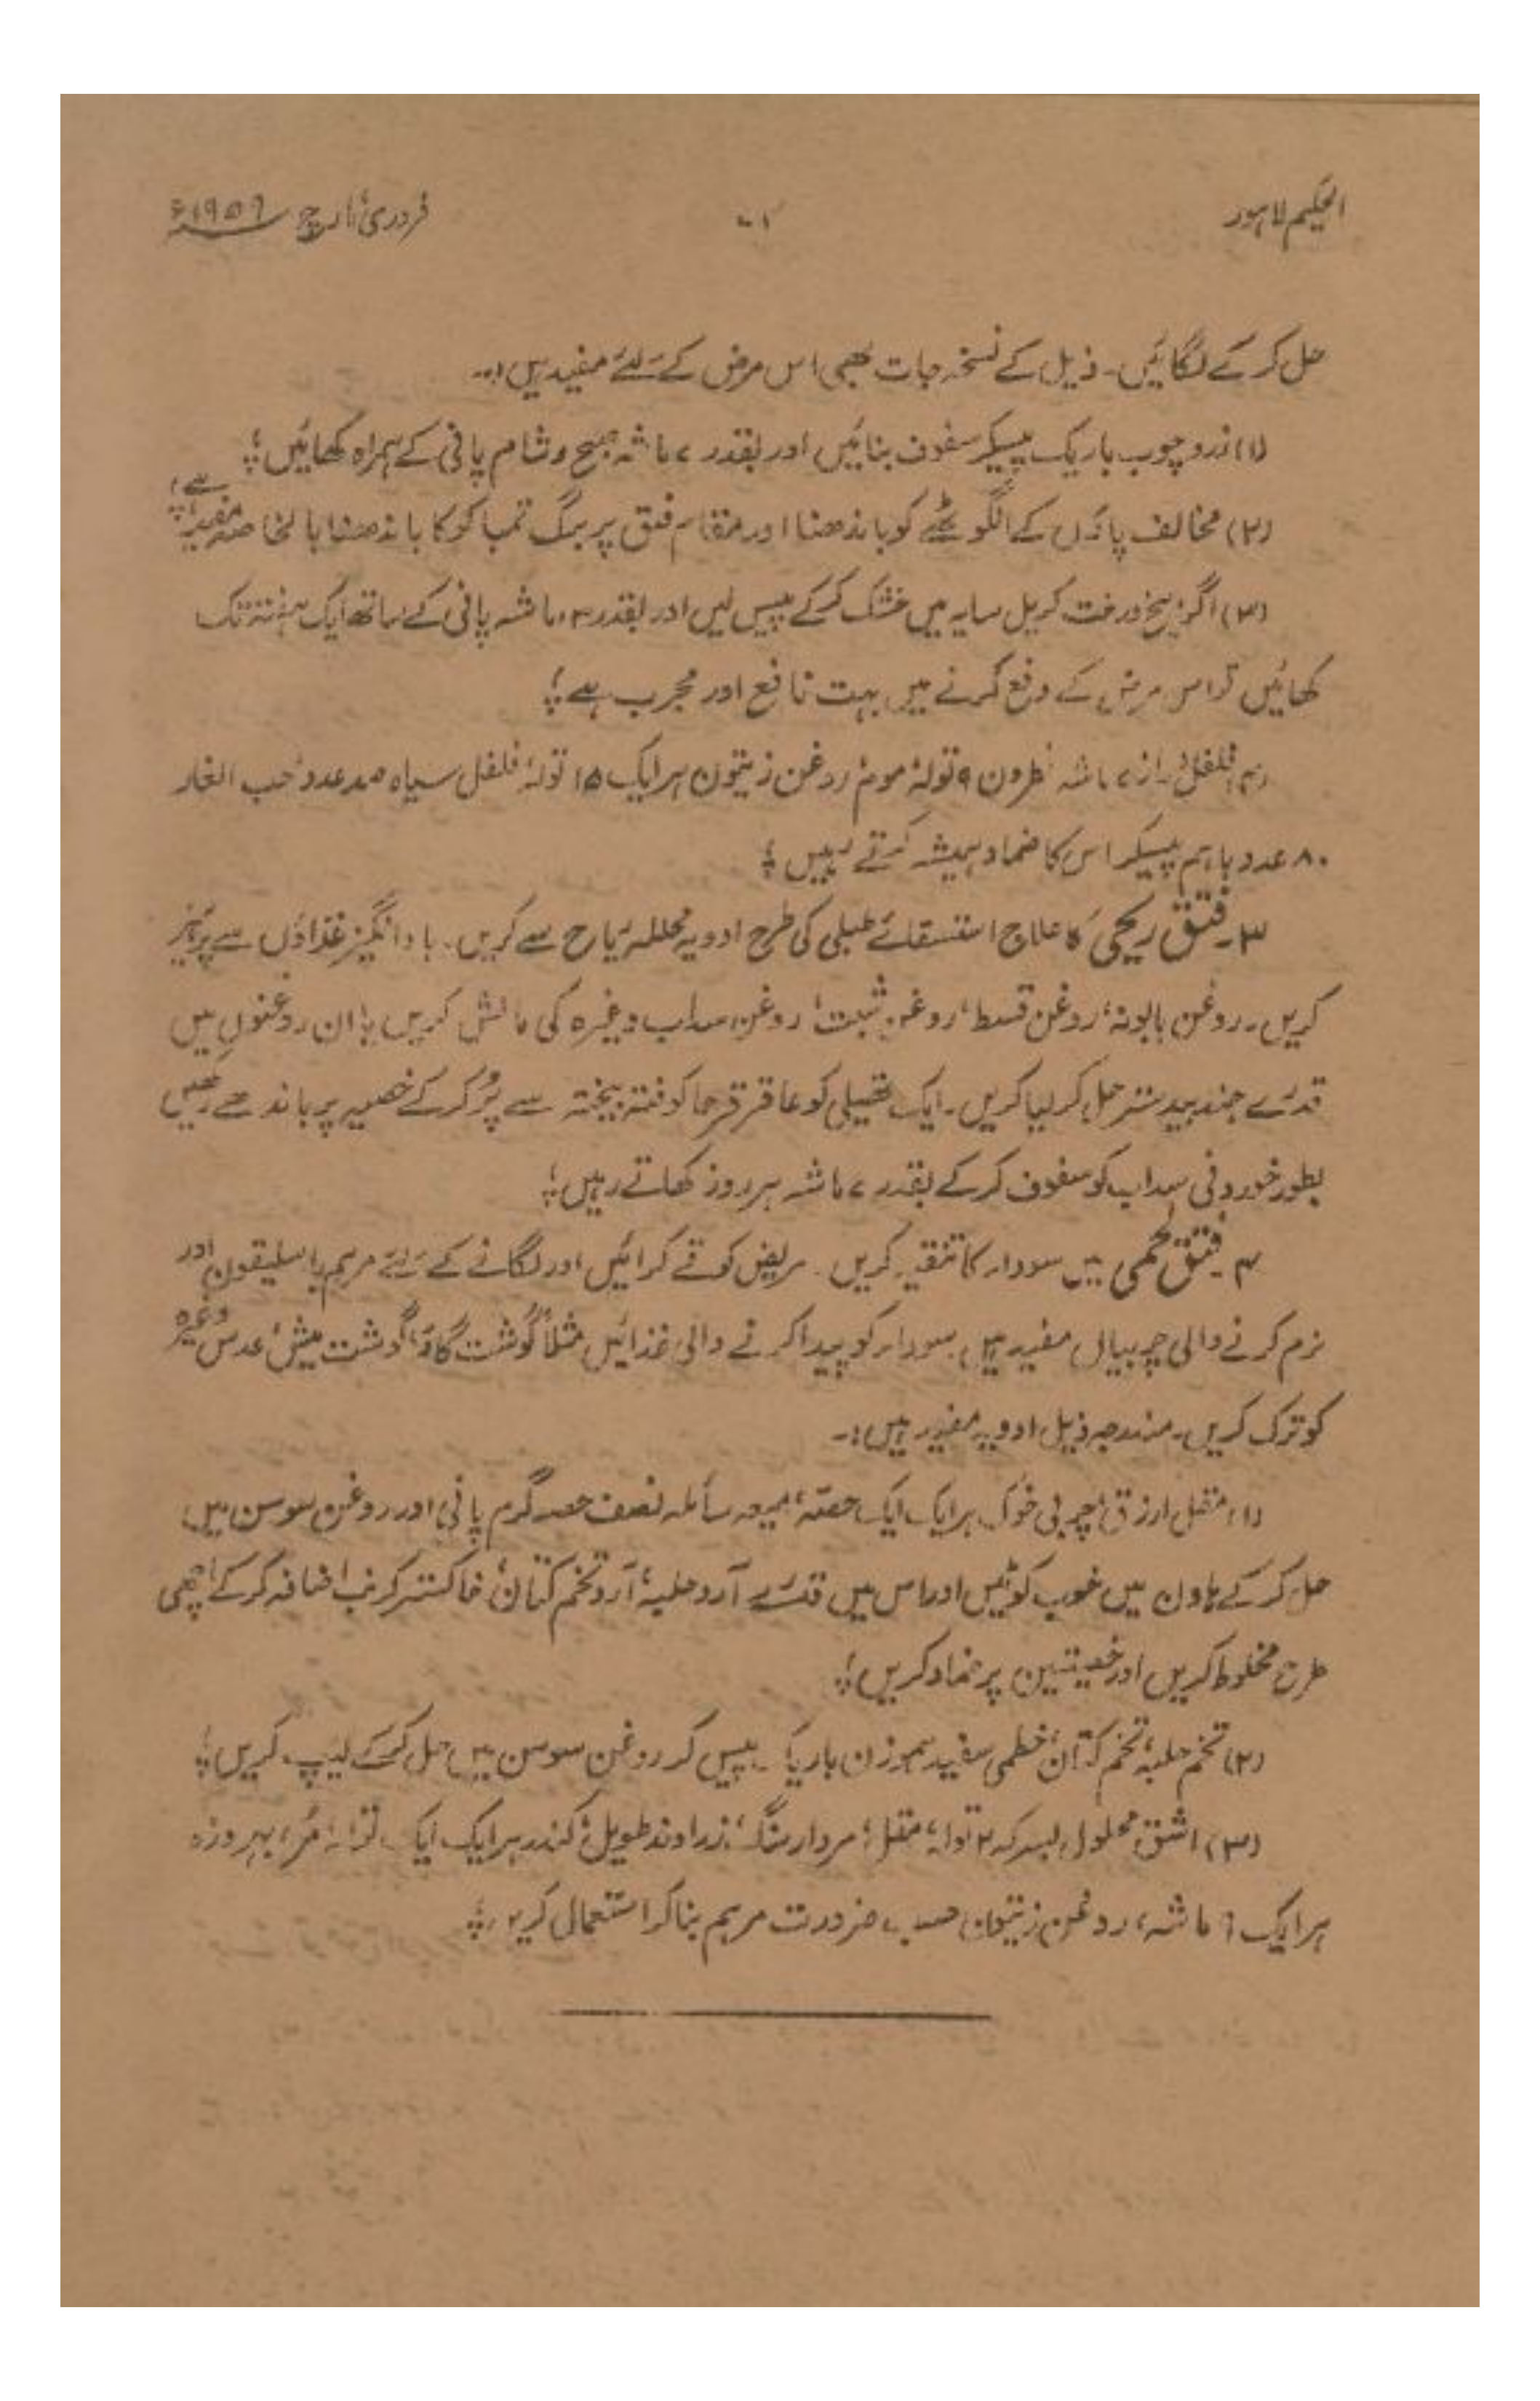 الحکیم لاہور
۷۱
فروری، مارچ ۱۹۵۶ء
حل کر کے لگائیں۔ ذیل کے نسخہ جات بھی اس مرض کے لئے مفید ہیں:۔
(۱) زرد چوب باریک پیسکر سفوف بنائیں اور بقدر ۷ ماشہ صبح و شام پانی کے ہمراہ کھائیں؛
(۲) مخالف پاؤں کے انگوٹھے کو باندھنا اور مقام فتق پر برگ تمباکو کا باندھنا بالخاصہ مفید ہے؛
(۳) اگر بیخ درخت کریل سایہ میں خشک کرکے پیس لیں اور بقدر ۳ ماشہ پانی کے ساتھ ایک ہفتہ تک
کھائیں تو اس مرض کے دفع کرنے میں بہت نافع اور مجرب ہے؛
ماشہ نطرون ۹ تولہ، موم، روغن زیتون ہر ایک ۱۵ تولہ، فلفل سیاہ صد عدد، حب الغار
۸۰ عدد باہم پیسکر اس کا ضماد ہمیشہ کرتے رہیں؛
۳۔ فتق ریحی کا علاج استسقائے طبلی کی طرح ادویہ محللہ ریاح سے کریں۔ باد انگیز غذاؤں سے پرہیز
کریں۔ روغن بابونہ، روغن قسط، روغن شبت، روغن سداب وغیرہ کی مالش کریں یا ان روغنوں میں
قدرے جند بیدستر حل کر لیا کریں۔ ایک تھیلی کو عاقرقرحا کوفتہ بیختہ سے پُر کرکے خصیہ پر باندھے رکھیں
بطور خوردنی سداب کو سفوف کرکے بقدر ۷ ماشہ ہر روز کھاتے رہیں؛
۴۔ فتق لحمی میں سودار کا تنقیہ کریں۔ مریض کو قے کرائیں اور لگانے کے لئے مرہم باسلیقون اور
نرم کرنے والی چربیاں مفید ہیں سودار کو پیدا کرنے والی غذائیں مثلاً گوشت گاؤ، گوشت میش، عدس وغیرہ
کو ترک کریں۔ مندرجہ ذیل ادویہ مفید ہیں:۔
(۱) مقل ارزق، چربی خوک ہر ایک ایک حصہ، میعہ سائلہ نصف حصہ گرم پانی اور روغن سوسن میں
حل کر کے ہاون میں خوب کوٹیں اور اس میں قدرے آرد حلبہ، آرد تخم کتان، خاکستر کرنب اضافہ کرکے اچھی
طرح مخلوط کریں اور خصیتین پر ضماد کریں؛
(۲) تخم حلبہ، تخم کتان، خطمی سفید ہموزن باریک پیس کر روغن سوسن میں حل کرکے لیپ کریں؛
(۳) اشق محلول بسرکہ ۲ تولہ، مقل، مردار سنگ، زراوند طویل، کندر ہر ایک ایک تولہ، مُر، بہروزہ
ہر ایک ۶ ماشہ، روغن زیتون حسب ضرورت مرہم بنا کر استعمال کریں؛